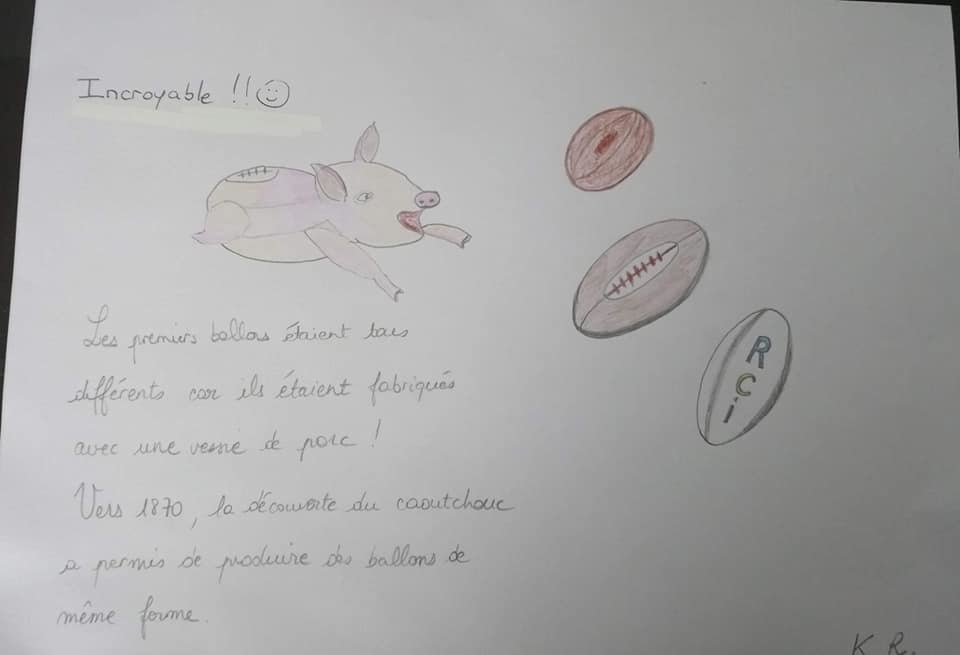 Incroyable !!
Les premiers ballons étaient tous
différents car ils étaient fabriqués
avec une vessie de porc !
Vers 1870, la découverte du caoutchouc
a permis de produire des ballons de
même forme.
R
C
i
K R.